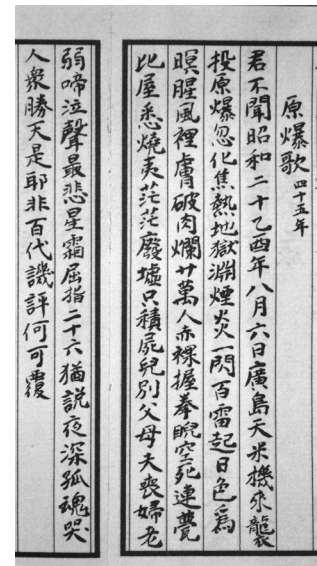 原爆歌 四十五年
君不聞昭和二十乙酉年八月六日廣島天米機来襲
投原爆忽化焦熱地獄淵煙炎一閃百雷起日色為
暝腥風裡膚破肉爛廿萬人赤裸握拳睨空死連甍
比屋悉燒夷茫茫廢墟只積屍兒別父母夫喪婦老
弱啼泣聲最悲星霜屈指二十六猶説夜深孤魂哭
人衆勝天是耶非百代譏評何可覆